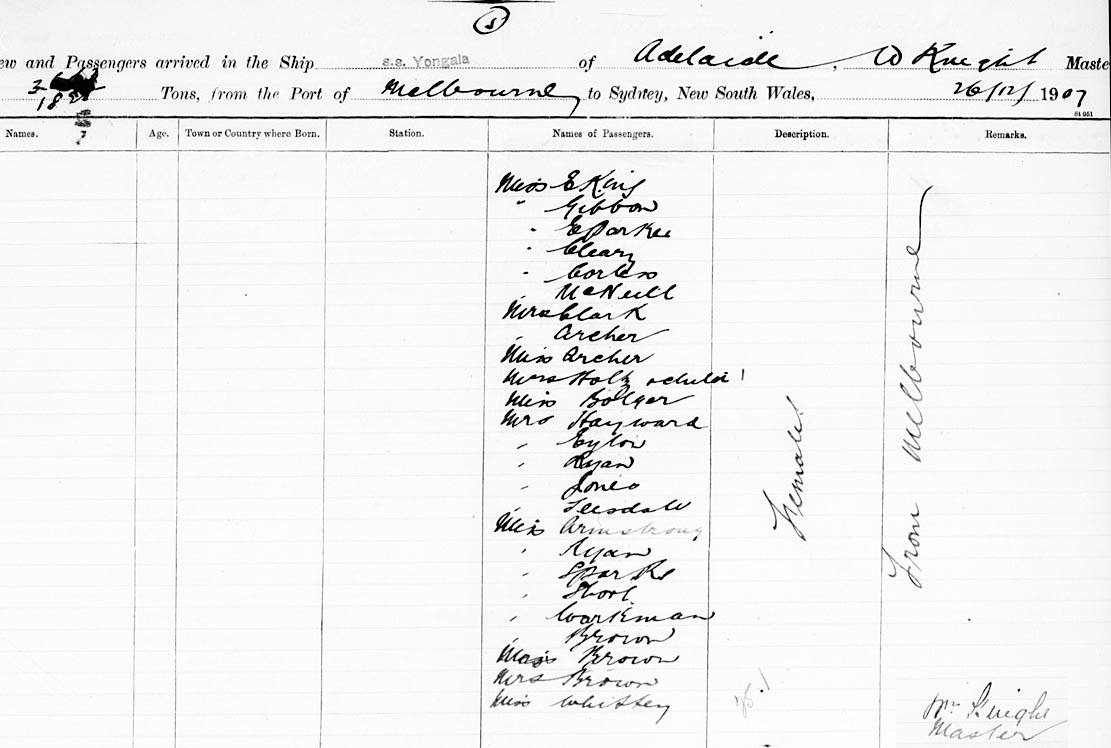 5
ew and Passengers arrived in the Ship s.s. Yongala of Adelaide, W Knight Maste
Tons, from the Port of Melbourne to Sydney, New South Wales, 26/12/ 1907
St 951
Names. Age. Town or Country where Born. Station. Names of Passengers. Description. Remarks.
Miss E King
" Gibbon
" E Parker
" Cleary
" Corless
" McNeill
Mrs Clark
" Archer
Miss Archer
Mrs Holt & child 1
Miss Bolger
Mrs Hayward
"
" Ryan
" Jones
" Teesdale
Miss Armstrong
" Ryan
" Sparke
"
" Workman
" Brown
Miss Brown
Mrs Brown
Miss Whittey
Females
From Melbourne
25.1
Wm Knight
Master